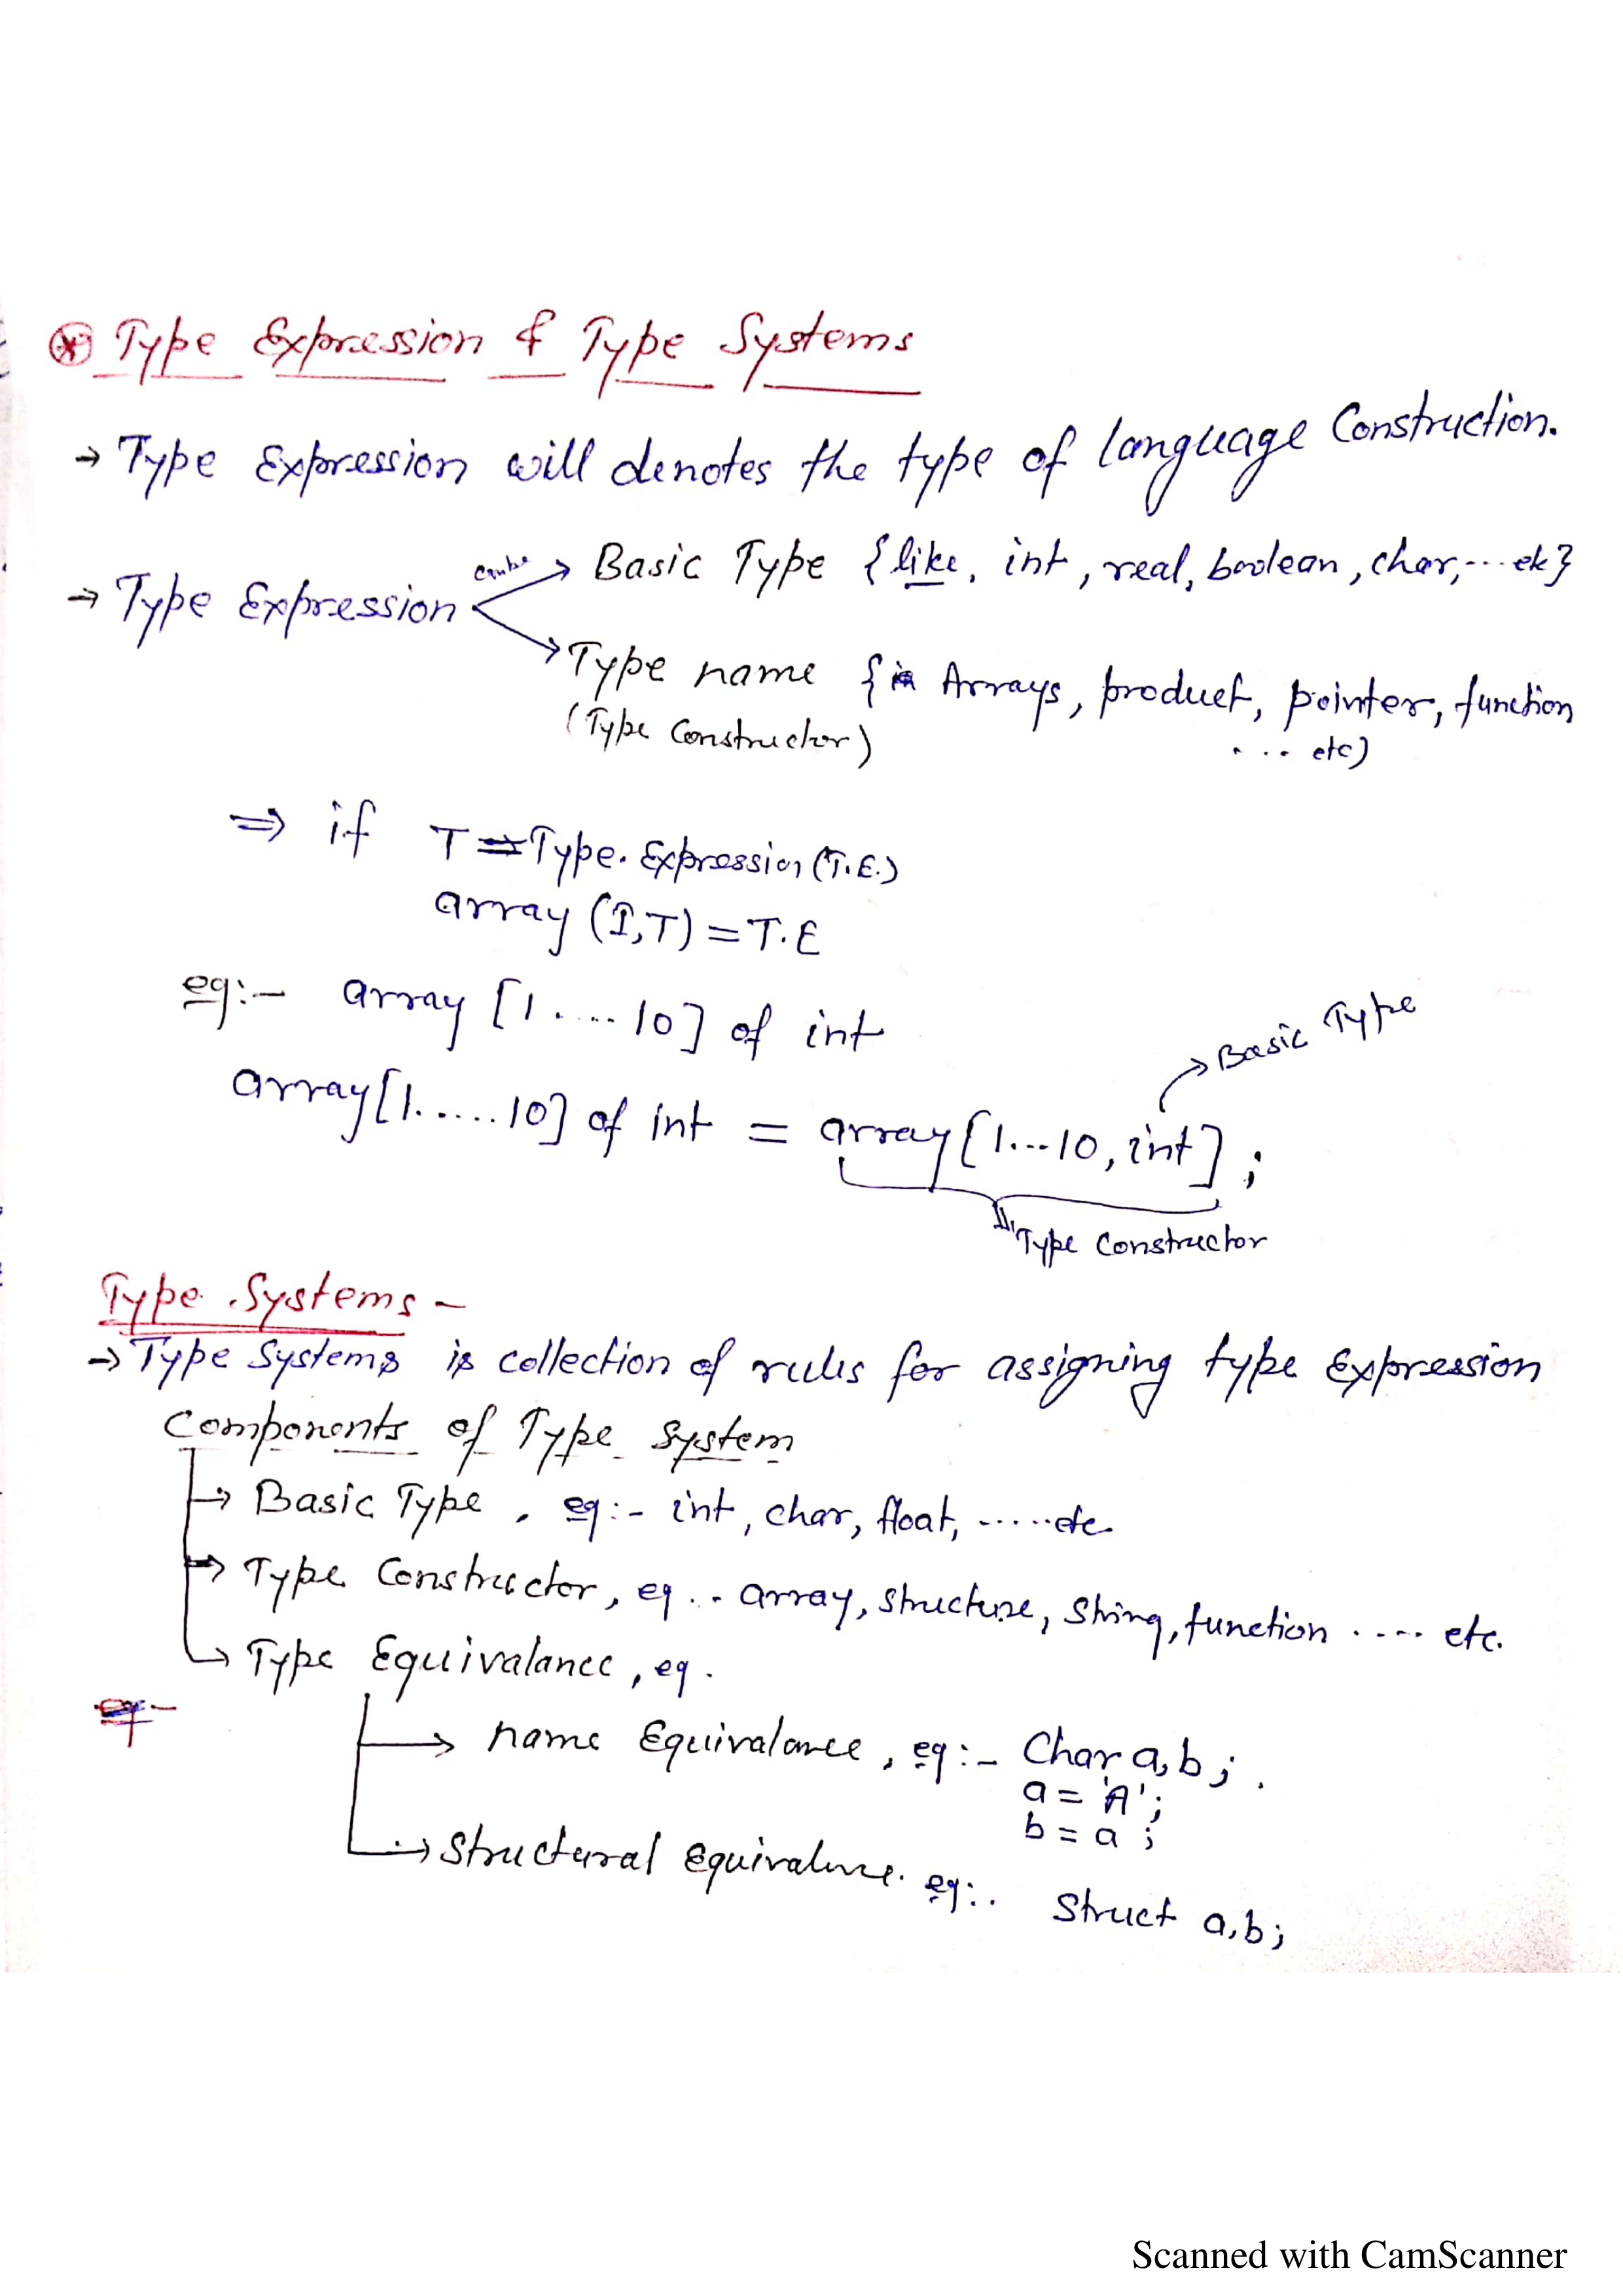 ⊛ Type Expression & Type Systems
→ Type Expression will denotes the type of language Construction.
→ Type Expression can be → Basic Type {like, int, real, boolean, char, ... etc}
→ Type name { Arrays, product, pointer, function
(Type Constructor) ... etc)
⇒ if T = Type Expression (T.E.)
array (I,T) = T.E
eg:- array [1.....10] of int
→ Basic Type
array[1.....10] of int = array[1...10, int] ;
Type Constructor
Type Systems -
→ Type Systems is collection of rules for assigning type Expression
Components of Type System
→ Basic Type , eg:- int, char, float, ......etc.
→ Type Constructor, eg .. array, structure, String, function ..... etc.
→ Type Equivalance, eg.
→ name Equivalance , eg:- Char a, b ; .
a = 'A' ;
b = a ;
→ Structural equivalence. eg:. Struct a, b ;
Scanned with CamScanner